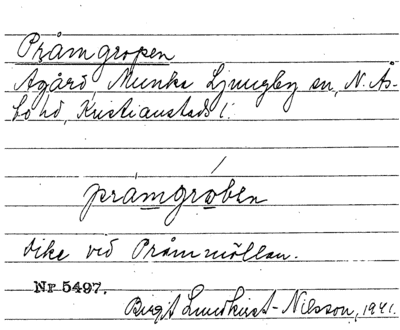 Pråmgropen
Agård, Munka Ljungby sn, N. Ås-
bo hd, Kristianstads l.
pråmgrǫben
dike vid Pråmmöllan.
Nr 5497.
Birgit Lundkvist-Nilsson, 1941.